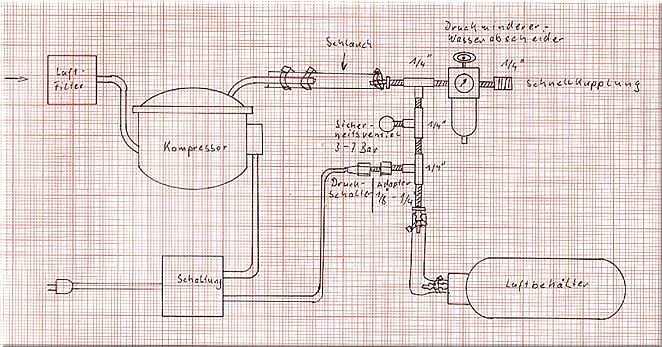 Druckminderer-
Wasserabscheider
Schlauch
1/4"
1/4"
Luft-
Filter
Schnellkupplung
Sicher-
heitsventiel
3-7 Bar
1/4"
Kompressor
1/4"
Druck-
Schalter
Adapter
1/8
1/4
Schaltung
Luftbehälter